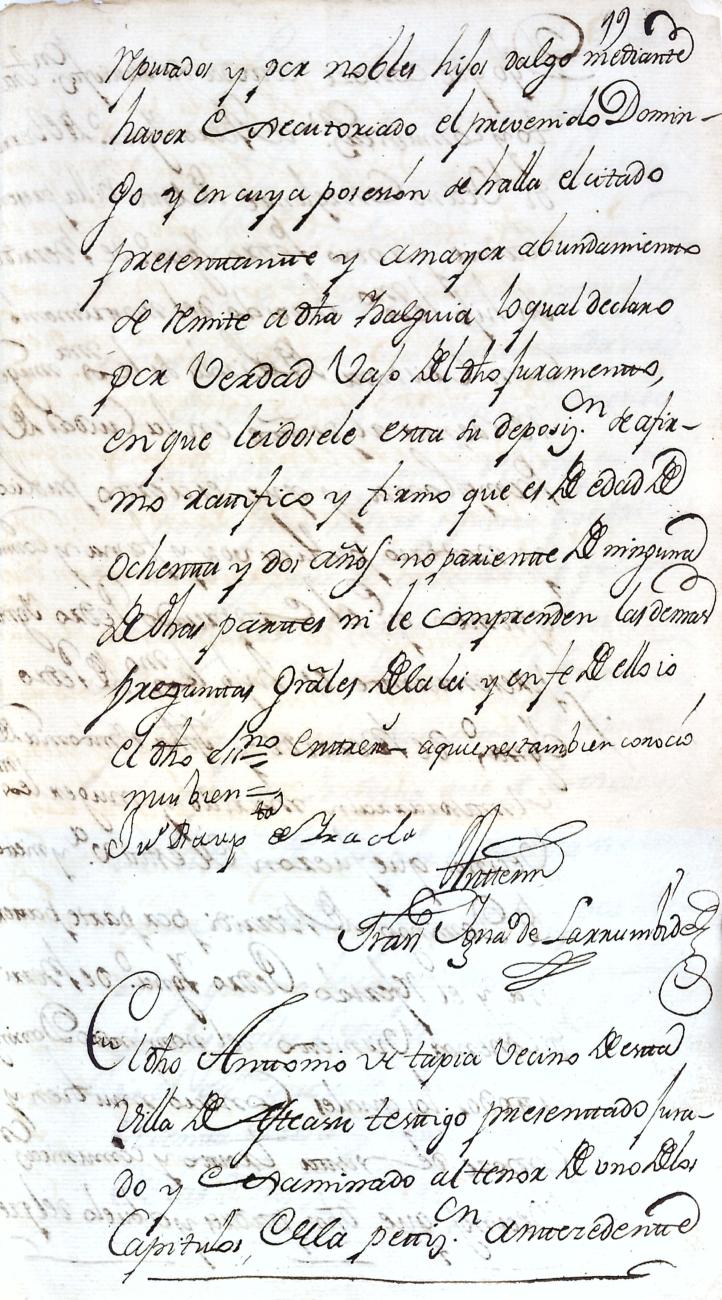 19
reputados y por nobles hijos dalgo mediante
haver Executoriado el prevenido Domin-
go y en cuya posesión se halla el citado
presentante y a mayor abundamiento
se remite a dha Idalguia lo qual declaro
por Verdad Vajo Del dho juramento,
en que leidosele esta su deposiz.on se afir-
mo rattifico y firmo que es De edad De
ochenta y dos años no pariente De ninguna
De dhas partes ni le comprenden las demas
preguntas Grãles De la lei y en fe De ello io
el dho essno Entreren- a quienes tambien conoció
mui bien=
de Yraola
Anttemi
Fran Igna.o de Larrumbide
El dho Anttonio de tapia Vecino De esta
Villa De Asteasu testigo presentado jura-
do y Examinado al tenor De uno De los
Capitulos, De la petiz.on antezedente